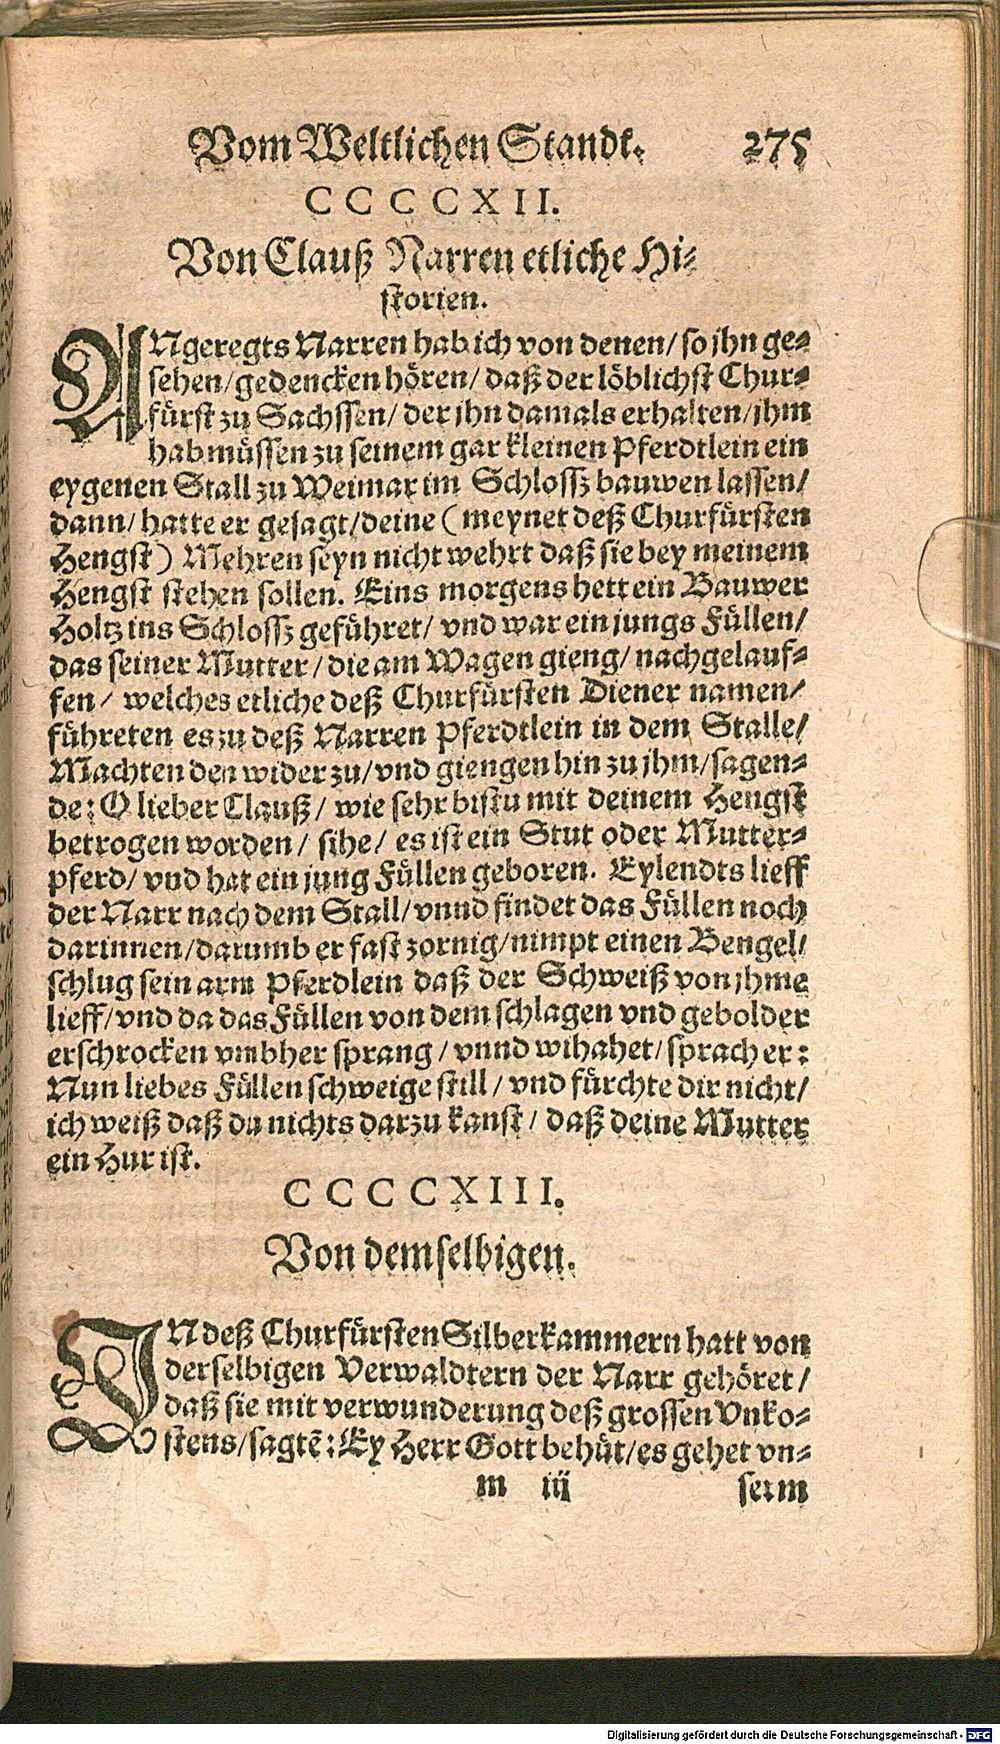 Vom Weltlichen Standt. 275
CCCCXII.
Von Clauß Narren etliche Hi-
storien.
ANgeregts Narren hab ich von denen/ so jhn ge-
sehen/ gedencken hören/ daß der löblichst Chur-
fürst zu Sachssen/ der jhn damals erhalten/ jhm
hab müssen zu seinem gar kleinen Pferdtlein ein
eygenen Stall zu Weimar im Schlossz bauwen lassen/
dann/ hatte er gesagt/ deine (meynet deß Churfürsten
Hengst) Mehren seyn nicht wehrt daß sie bey meinem
Hengst stehen sollen. Eins morgens hett ein Bauwer
Holtz ins Schlossz geführet/ vnd war ein jungs Füllen/
das seiner Mutter/ die am Wagen gieng/ nachgelauf-
fen/ welches etliche deß Churfürsten Diener namen/
führeten es zu deß Narren Pferdtlein in dem Stalle/
Machten den wider zu/ vnd giengen hin zu jhm/ sagen-
de: O lieber Clauß/ wie sehr bistu mit deinem Hengst
betrogen worden/ sihe/ es ist ein Stut oder Mutter-
pferd/ vnd hat ein jung Füllen geboren. Eylendts lieff
der Narr nach dem Stall/ vnnd findet das Füllen noch
darinnen/ darumb er fast zornig/ nimpt einen Bengel/
schlug sein arm Pferdlein daß der Schweiß von jhme
lieff/ vnd da das Füllen von dem schlagen vnd gebolder
erschrocken vmbher sprang/ vnnd wihahet/ sprach er:
Nun liebes Füllen schweige still/ vnd fürchte dir nicht/
ich weiß daß du nichts darzu kanst/ daß deine Mutter
ein Hur ist.
CCCCXIII.
Von demselbigen.
IN deß Churfürsten Silberkammern hatt von
derselbigen Verwaldtern der Narr gehöret/
daß sie mit verwunderung deß grossen Vnko-
stens/ sagtē: Ey Herr Gott behüt/ es gehet vn-
m iij serm
Digitalisierung gefördert durch die Deutsche Forschungsgemeinschaft - DFG